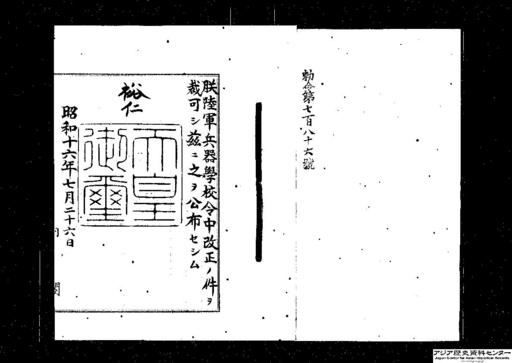 勅令第七百八十六號
朕陸軍兵器學校令中改正ノ件ヲ
裁可シ茲ニ之ヲ公布セシム
裕仁
天皇
御璽
昭和十六年七月二十六日
アジア歴史資料センター
Japan Center for Asian Historical Records